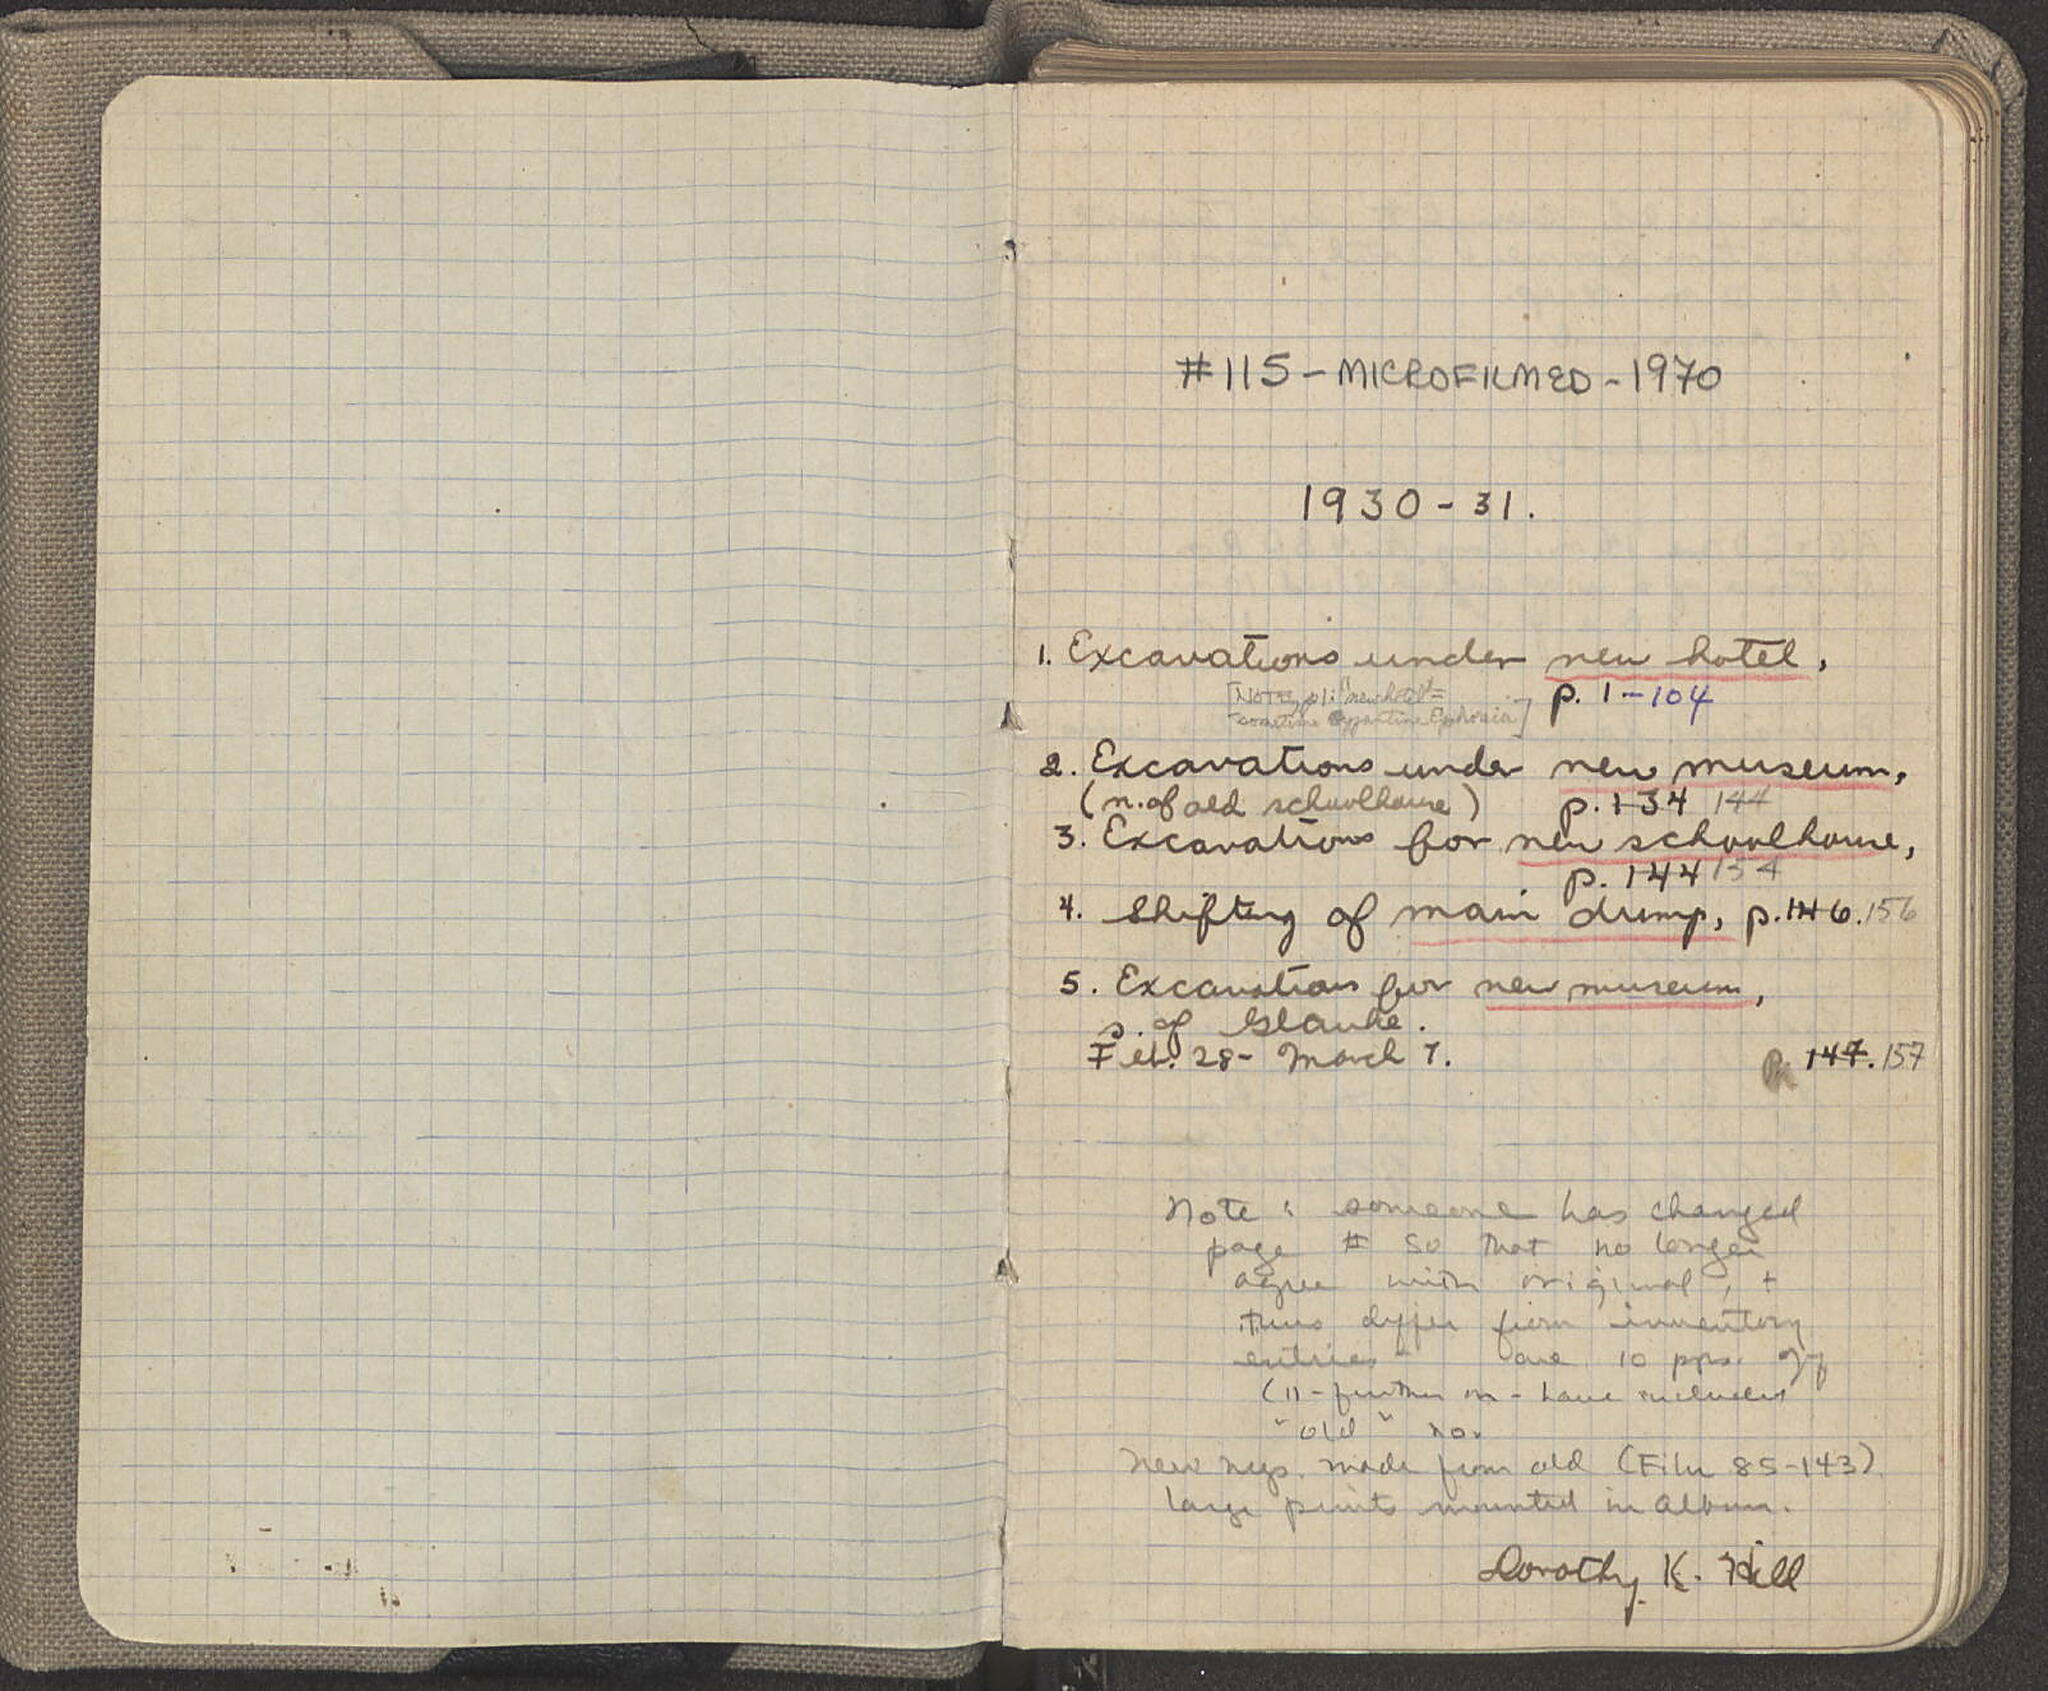 #115 - MICROFILMED - 1970
1930-31.
1. Excavations under new hotel,
[NOTE, p1: "new hotel" = p. 1-104
sometime Byzantine Ephoria]
2. Excavations under new museum,
(n. of old schoolhouse) p. 134 144
3. Excavations for new schoolhouse,
p. 144 154
4. Shifting of main dump, p. 146. 156
5. Excavations for new museum,
s. of Glauke.
Feb. 28 - March 7. p. 147. 157
Note: someone has changed
page # so that no longer
agree with original, +
thus differ from inventory
entries - are 10 pps. off
(11 - further on - have included
"old" no.
New negs. made from old (Film 85-143)
large prints mounted in album.
Dorothy K. Hill